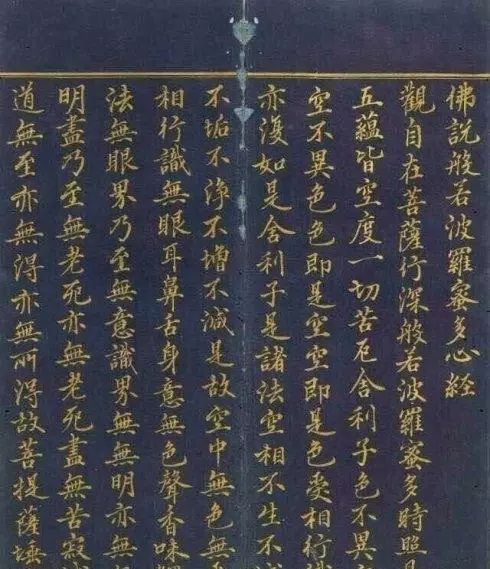 佛説般若波羅蜜多心経
觀自在菩薩行深般若波羅蜜多時照
五蘊皆空度一切苦厄舍利子色不異
空不異色色即是空空即是色受相行識
亦復如是舍利子是諸法空相不生不
不垢不淨不增不減是故空中無色無
相行識無眼耳鼻舌身意無色聲香味
法無眼界乃至無意識界無無明亦無
明盡乃至無老死亦無老死盡無苦寂
道無至亦無得亦無所得故菩提薩埵